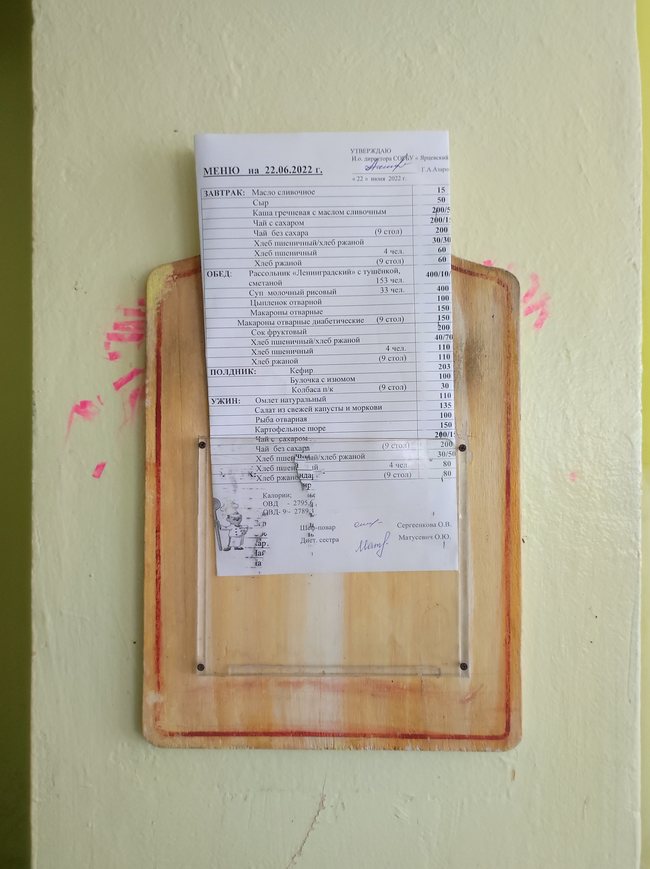 УТВЕРЖДАЮ
И.о. директора « Ярцевский
МЕНЮ на 22.06.2022 г.
« 22 » июня 2022 г.
ЗАВТРАК: Масло сливочное 15
Сыр 50
Каша гречневая с маслом сливочным 200/5
Чай с сахаром
Чай без сахара (9 стол) 200
Хлеб пшеничный/хлеб ржаной 30/30
Хлеб пшеничный 4 чел. 60
Хлеб ржаной (9 стол) 60
ОБЕД: Рассольник «Ленинградский» с тушёнкой,
сметаной 153 чел. 400/10
Суп молочный рисовый 33 чел. 400
Цыпленок отварной 100
Макароны отварные 150
Макароны отварные диабетические (9 стол) 150
Сок фруктовый 200
Хлеб пшеничный/хлеб ржаной 40/70
Хлеб пшеничный 4 чел. 110
Хлеб ржаной (9 стол) 110
ПОЛДНИК: Кефир 203
Булочка с изюмом 100
Колбаса п/к (9 стол) 30
УЖИН: Омлет натуральный 110
Салат из свежей капусты и моркови 135
Рыба отварная 100
Картофельное пюре 150
Чай с сахаром
Чай без сахара (9 стол) 200
Хлеб /хлеб ржаной 30/50
Хлеб 4 чел. 80
Хлеб (9 стол) 80
Калории:
ОВД -
ОВД- 9-
Шеф-повар Сергеенкова О.В.
Диет. сестра Матусевич О.Ю.